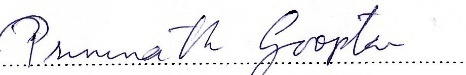 Preonath Goopta